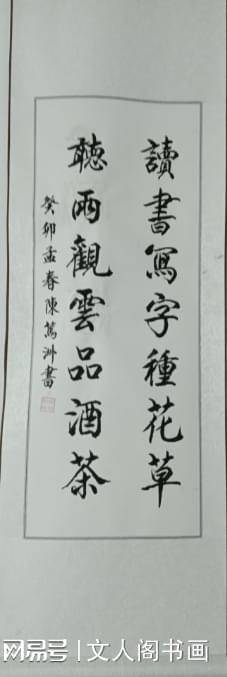 讀書寫字種花草
聽雨觀雲品酒茶
癸卯孟春陳篤洲書
网易号 | 文人阁书画